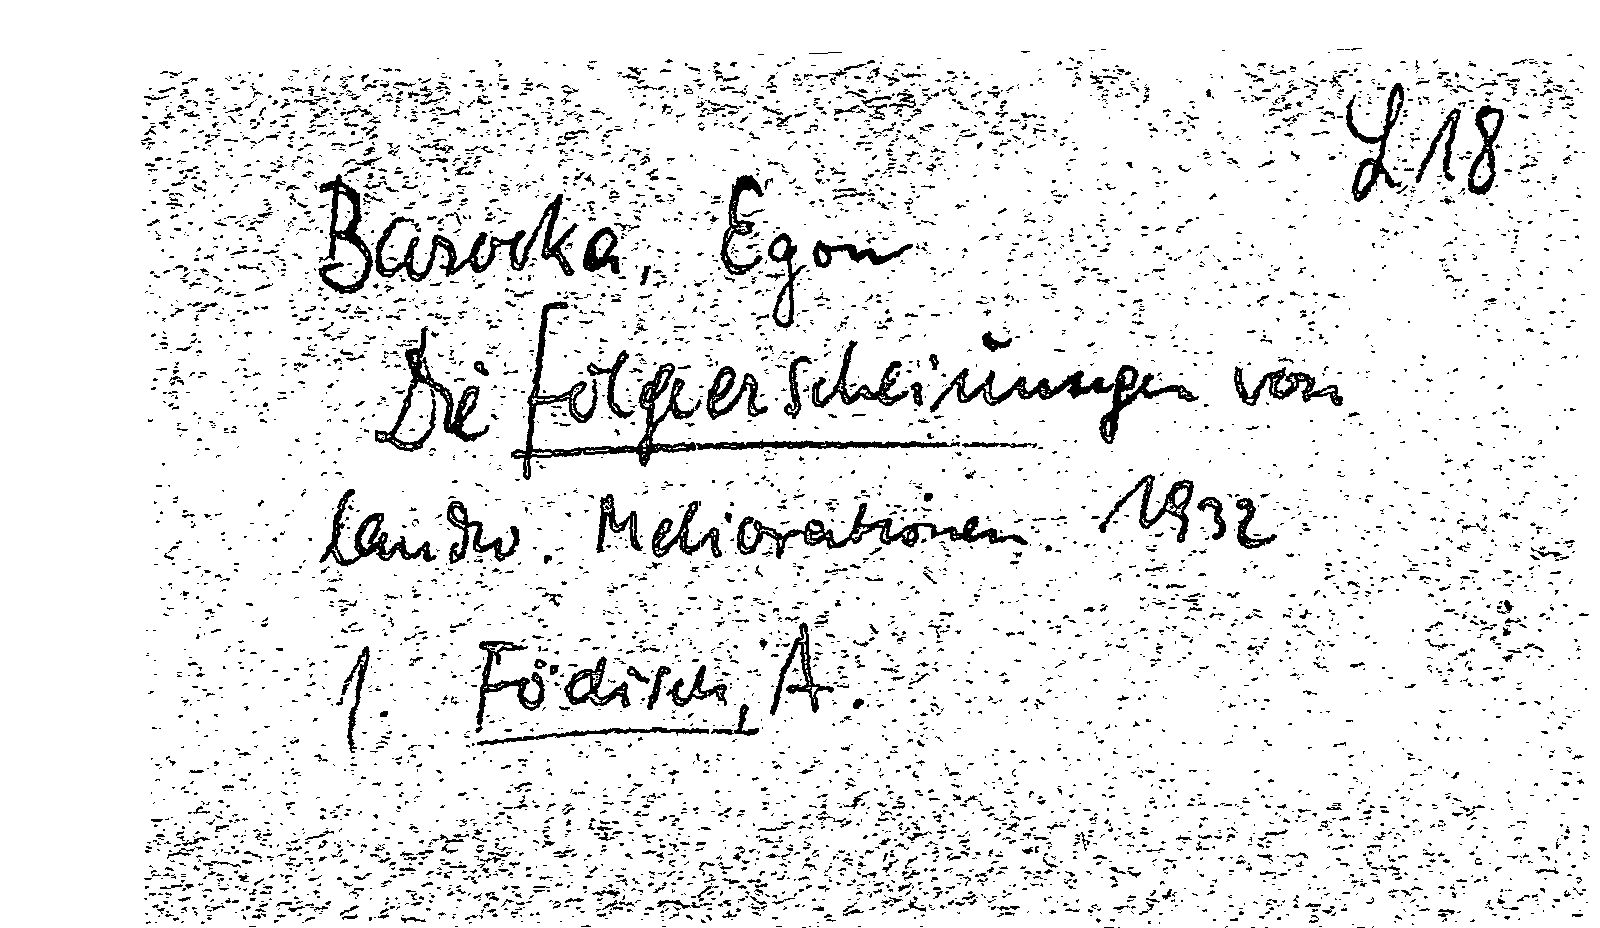 L18
Barocka, Egon
Die Folgeerscheinungen von
landw. Meliorationen. 1932
1. Födisch, A.